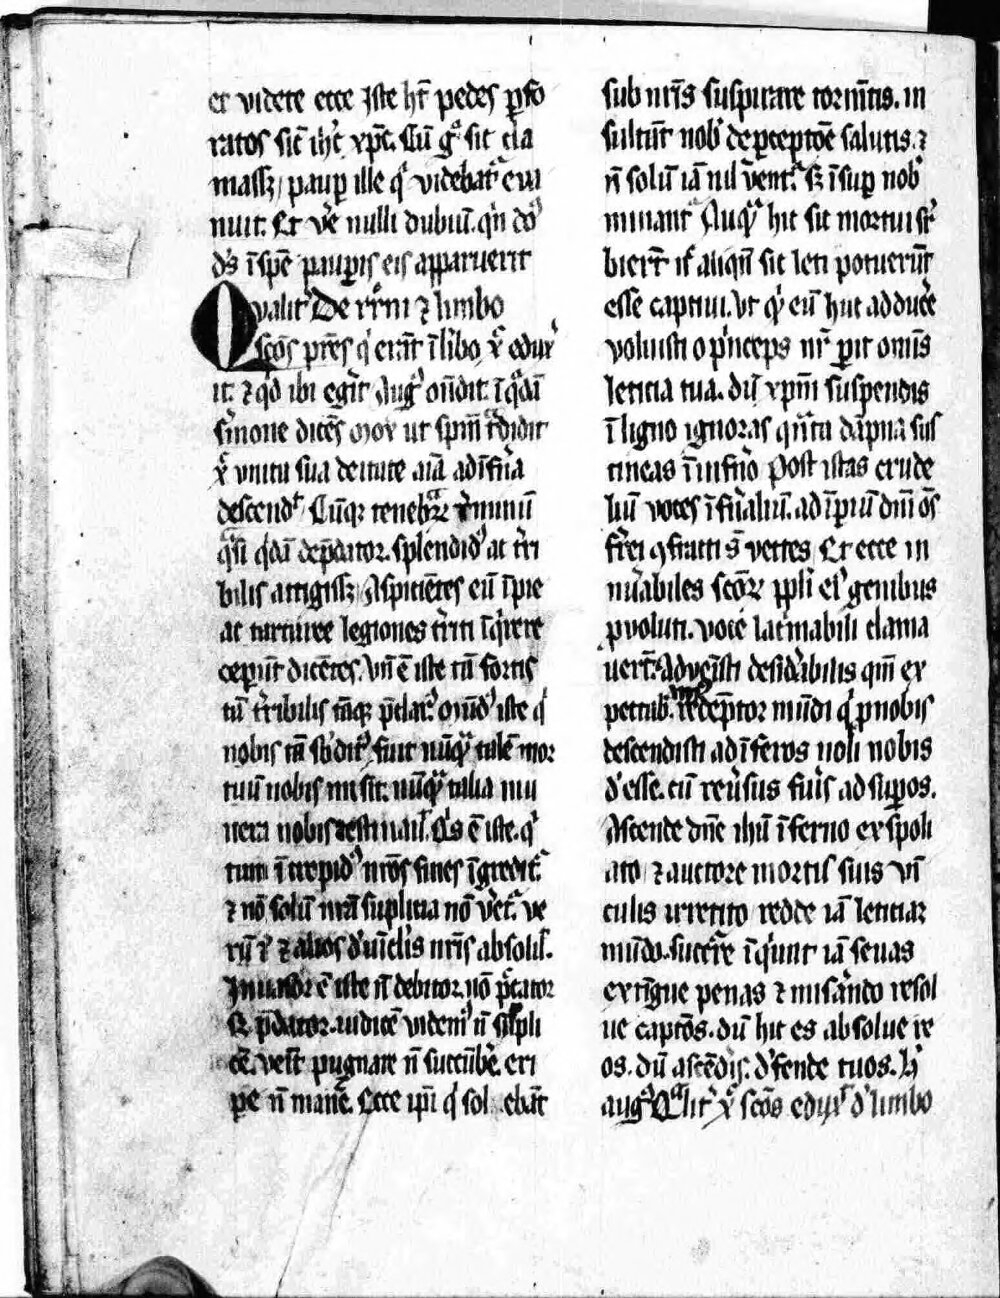 et videte ecce iste ht̄ pedes ꝑfo
ratos sic̄ ih̄c xp̄c. Cū gͦ sic cla
massꝫ paup ille qͥ videbatͬ eva
nuit. Et v̄e nulli dubiū. qn̄ do
d̄s ī spē paupis eis apparuerit
Qualitͬ De xr̄m ⁊ limbo
scōs pr̄es qͥ erāt ī lībo xͬ edux
it. ⁊ qd̓ ibi egͥt Augͬ on̄dit. ī qͣdā
sͬmone dicēs mox ut spm̄ tͣdidit
xͬ unita sua deitate aīa ad īfͬna
descendͭ Cūqꝫ tenebraꝝ tͬminū
qͣsi qͥdā depdator. splendidͧ ac tͬri
bilis attigissꝫ Aspiciētes eū īpie
ac tartaree legiones tͬriti īqͥrere
ceperūt dicētes. Vn̄ ē iste tā fortis
tā tͬribilis tāqꝫ p̄clarͧ. mūdͧ iste qͥ
nobis tā sb̓ditͧ fuit nūqͣ talē mor
tuū nobis misit. nūqͣ talia mu
nera nobis destinauit. Qͥs ē iste. qͥ
tam ītrepidͧ nr̄os fines īgreditͬ
⁊ nō solū nr̄a suplicia nō ver̄tͬ. ve
rū ⁊ alios d̓ vīclis nr̄is absoluit.
Inuasor ē iste n̄ debitor. nō pͨcator
sꝫ p̄dator. iudicē videmͧ n̄ supli
cē. venit pugnare n̄ sucūbe̓. eri
pe n̄ mane̓. Ecce ip̄i qͥ solebāt
sub nr̄is suspirare tormn̄tis. in
sultāt nob̓ de ꝑceptōe salutis. ⁊
n̄ solū iā nil v̓entͬ. sꝫ īsup nob̓
minantͬ Nūqͣ hic sic mortui suꝑ
bierūt nͨ aliqn̄ sic leti potuerūt
esse captiui. Ut qͥ eū huc adduce̓
voluisti o pͥnceps nr̄ ꝑit om̄is
leticia tua. dū xp̄m suspendis
ī ligno ignoras qn̄ta dāpna sus
tineas ī inferno Post istas crude
liū voces īfͬnaliū. ad īpiū dn̄i oēs
fͬrei ꝯfracti s̄t vectes Et ecce in
nu̓abiles scōꝝ ppli eiͥ genibus
ꝓvoluti. voce lacͬmabili clama
uerūt Aduēisti desid̓abilis quē ex
pectabͣ. redēptor mūdi qͥ ꝓ nobis
descendisti ad īferos noli nobis
d̓esse. cū reu̓sus fu̓is ad supos.
Ascende dn̄e ihū īferno expoli
ato ⁊ auctore mortis suis vī
culis irretito redde iā leticia
mūdo. sucrͬe īqͥunt iā seuas
extīgue penas ⁊ misͬando resol
ue captos. dū hic es absolue re
os. dū ascēdis. d̓fende tuos. h̓
augͧ Qͣlitͬ xͬ scōs eduxͭ d̓ limbo